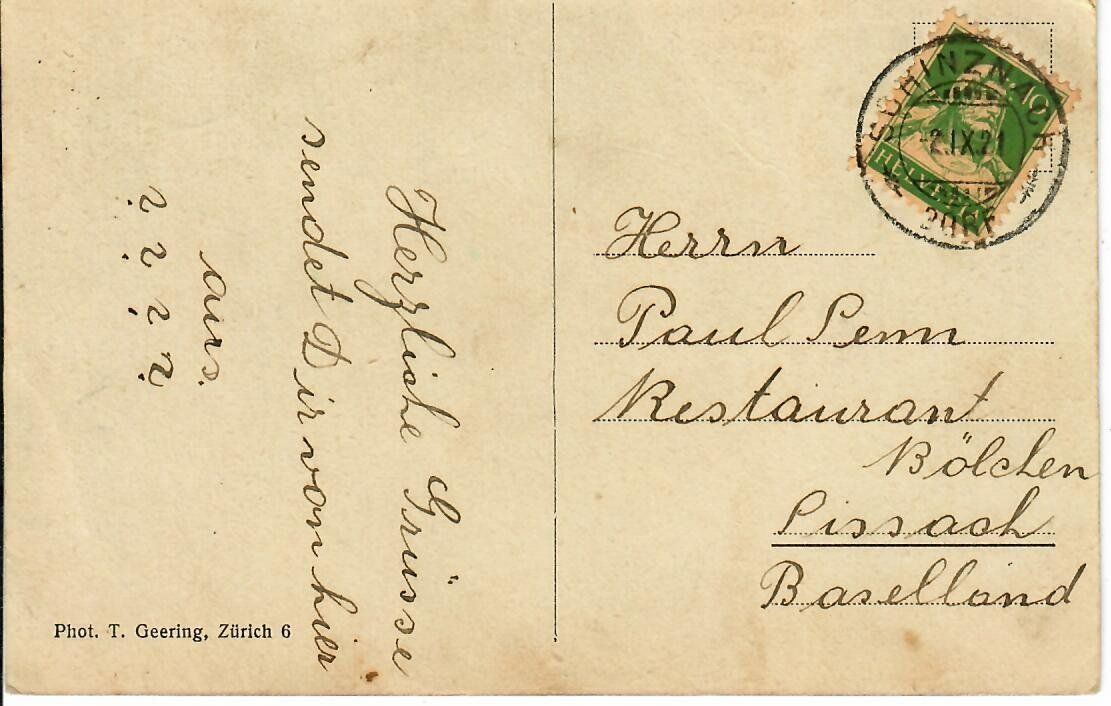 Herzliche Grüsse
sendet Dir von hier
aus.
? ? ? ?
Phot. T. Geering, Zürich 6
10
HELVETIA
SCHINZNACH
2.IX.21
DORF
Herrn
Paul Senn
Restaurant
Bölchen
Sissach
Baselland